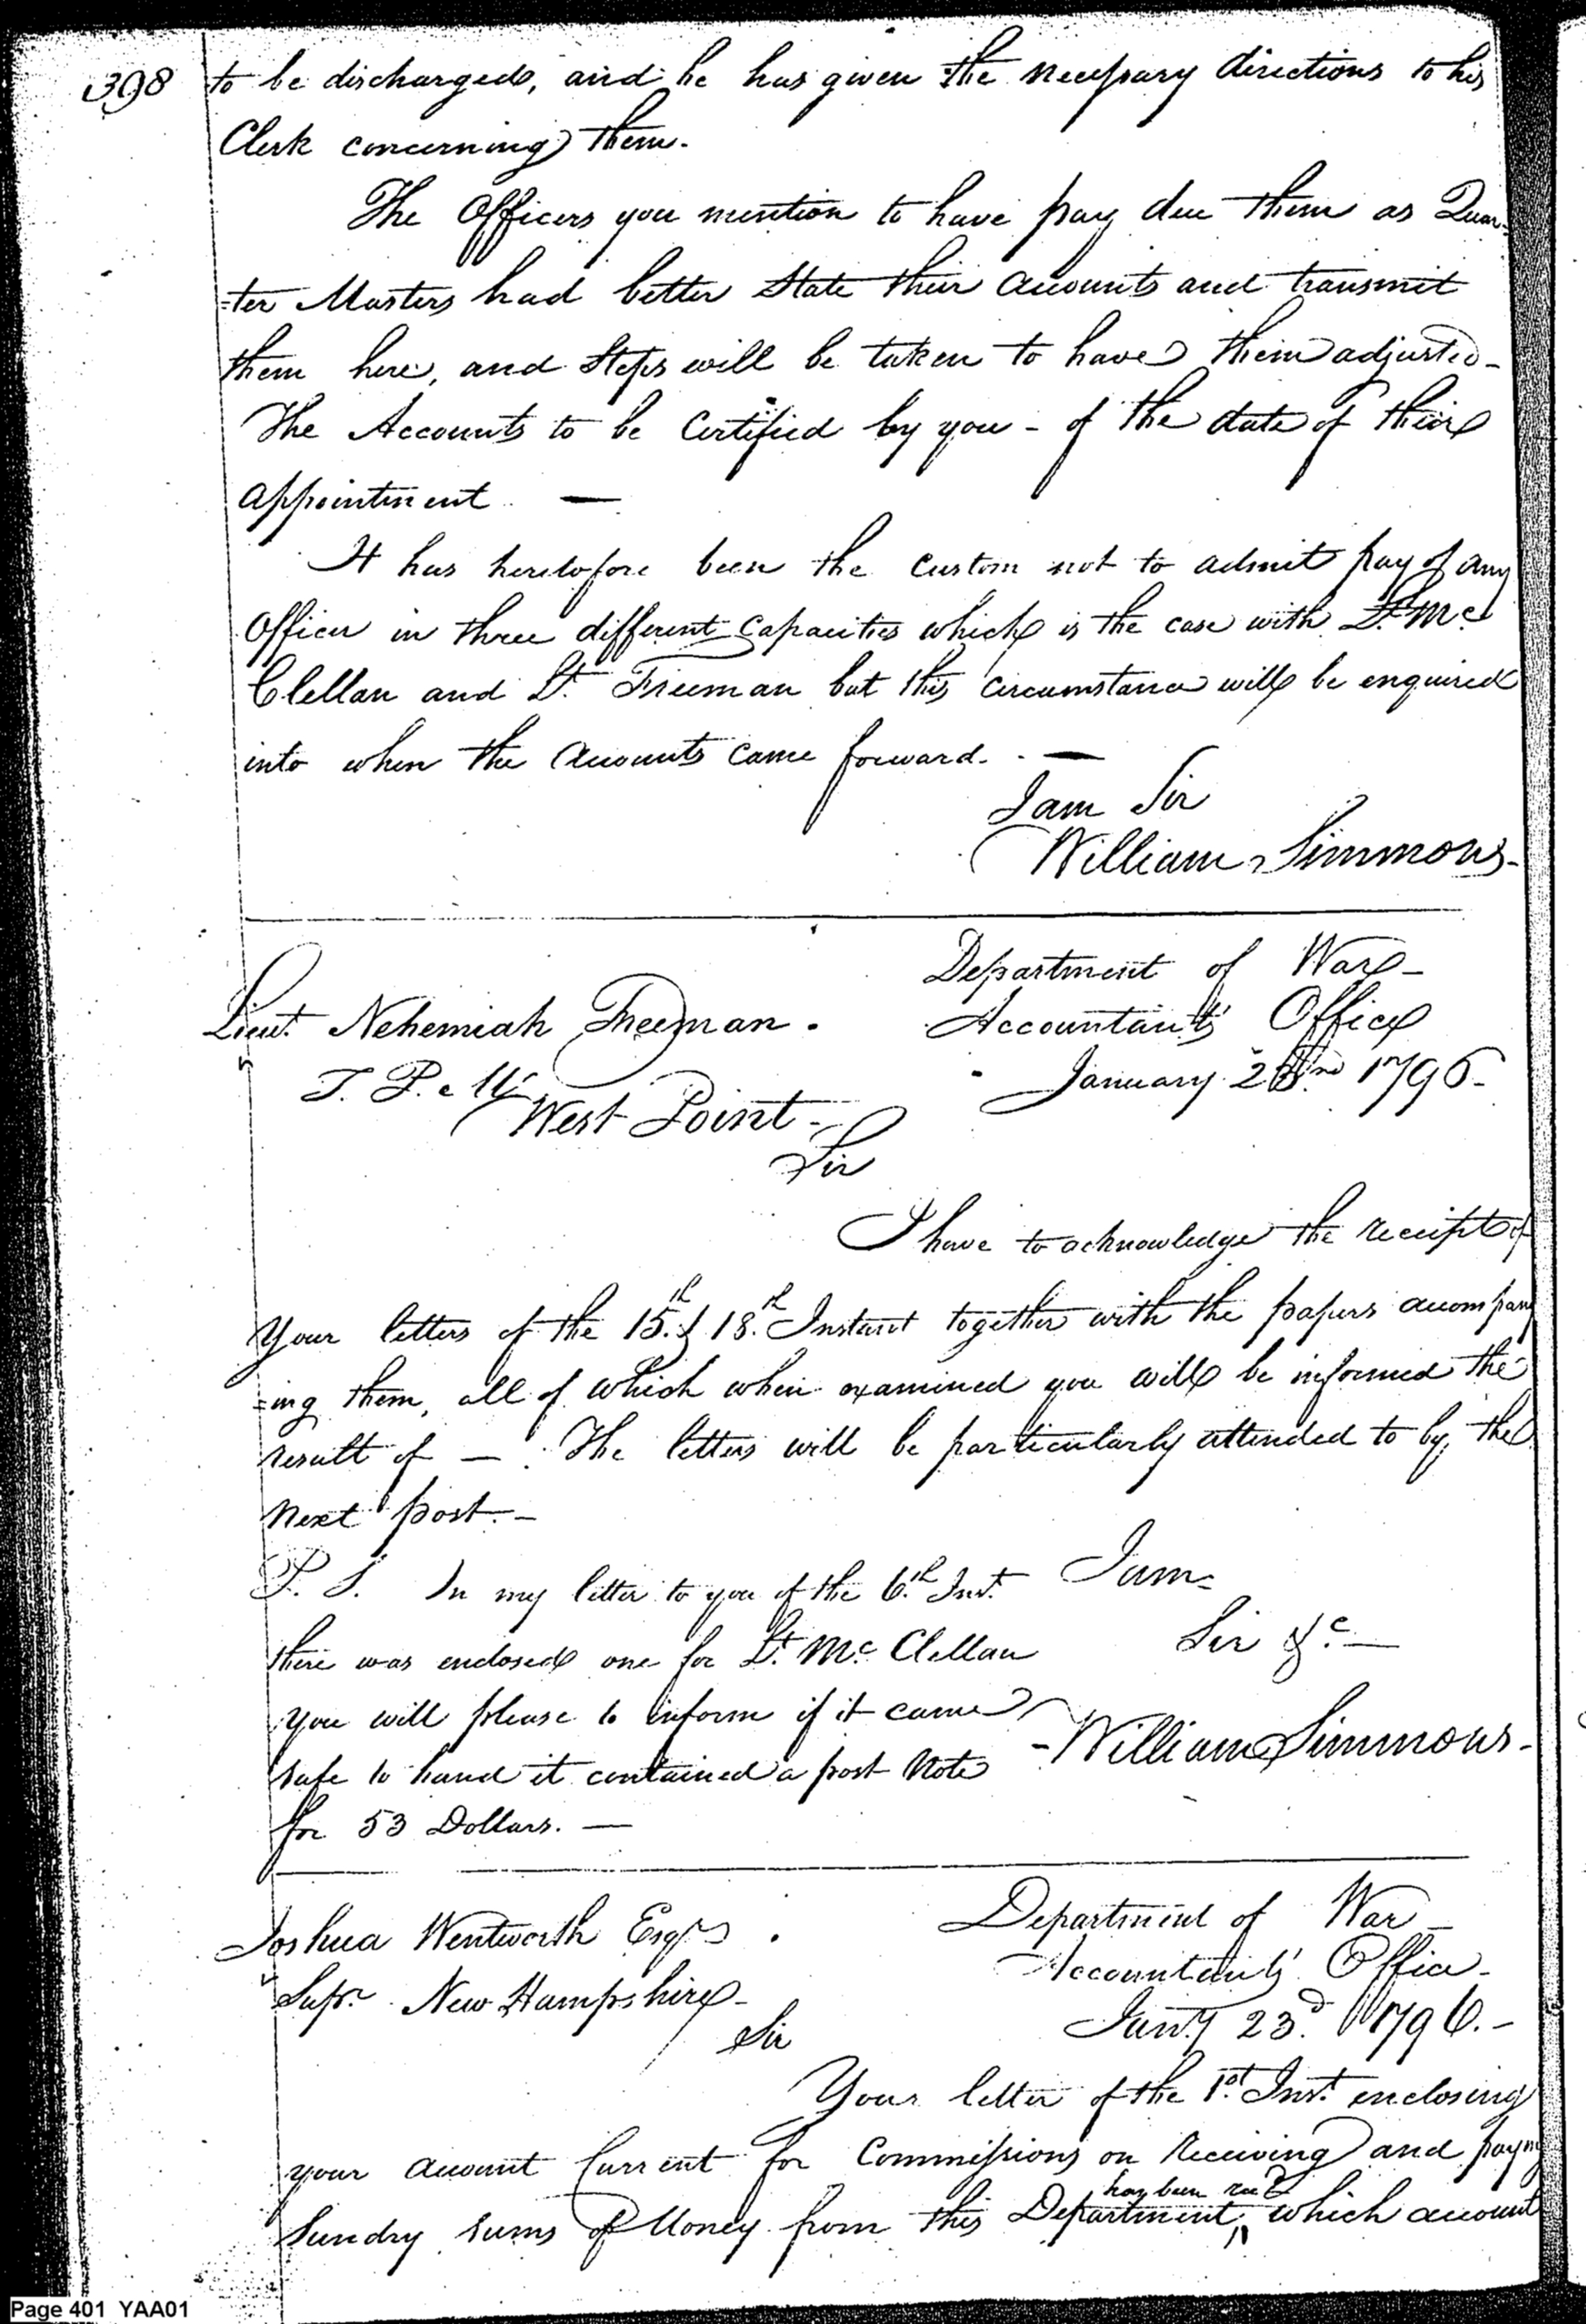 398
to be discharged, and he has given the necessary directions to his
Clerk concerning them.
The Officers you mention to have pay due them as Quar-
-ter Masters had better State their Accounts and transmit
them here, and Steps will be taken to have them adjusted-
The Accounts to be Certified by you - of the date of their
appointment. —
It has heretofore been the custom not to admit pay of any
Officer in three different Capacities which is the case with Lt. Mc.
Clellan and Lt. Freeman but this Circumstance will be enquired
into when the Accounts came forward. —
I am Sir
William Simmons-
Department of War-
Lieut. Nehemiah Freeman.
Accountant's Office
T. P. M.
January 23rd 1796-
West Point-
Sir
I have to acknowledge the receipt of
Your letters of the 15th. & 18th. Instant together with the papers accompany
-ing them, all of which when examined you will be informed the
result of — The letters will be particularly attended to by the
next post.-
P. S. In my letter to you of the 6th. Inst.
I am-
there was enclosed one for Lt. Mc. Clellan
Sir &c. —
you will please to inform if it came
safe to hand it contained a post Note
-William Simmons-
for 53 Dollars. —
Department of War-
Joshua Wentworth Esqr.
Accountant's Office-
Supr. New Hampshire-
Jany. 23d. 1796.-
Sir
Your letter of the 1st. Inst. enclosing
your account Current for Commissions on Receiving and paying
has been recd
Sundry sums of Money from this Department, which account
Page 401 YAA01